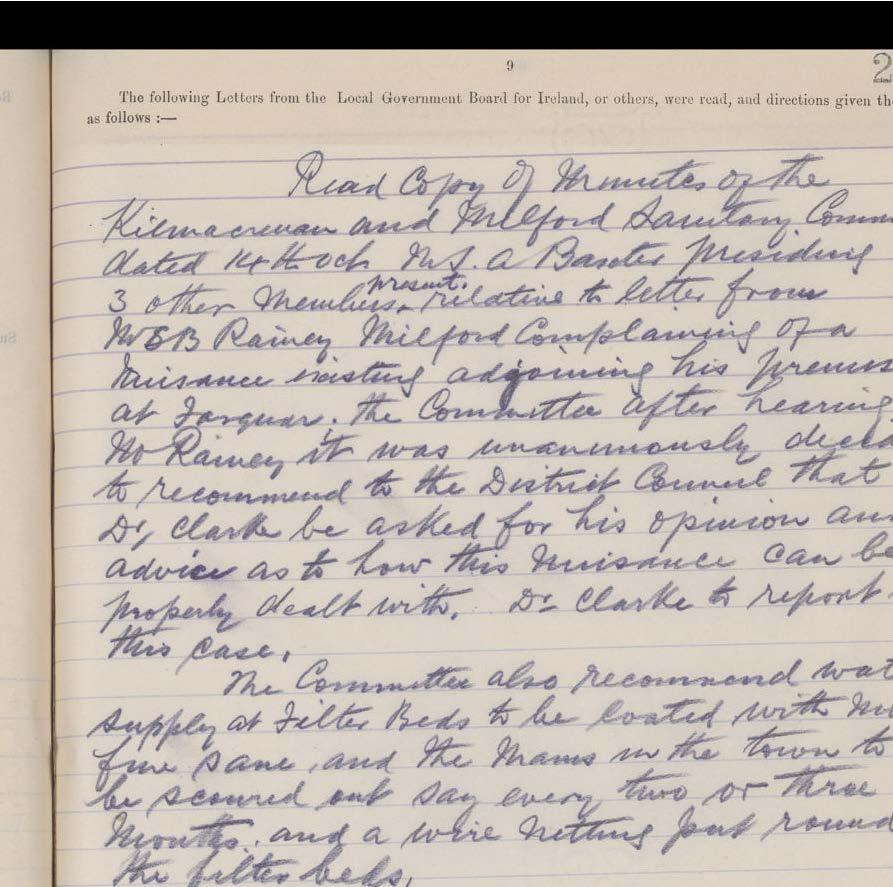 9
2
The following Letters from the Local Government Board for Ireland, or others, were read, and directions given th
as follows :—
Read Copy of Minutes of the
Kilmacrenan and Milford Sanitary Comm
dated 14th Oct Mr J. A Baxter presiding
present.
3 other Members, relative to letter from
Mr B Rainey Milford Complaining of a
Nuisance existing adjoining his premis
at . the Committee after hearing
Mr Rainey it was unanimously decid
to recommend to the District Council that
Dr, Clarke be asked for his opinion an
advice as to how this Nuisance can be
properly dealt with. Dr Clarke to report
this case.
The Committee also recommend wat
supply at Filter Beds to be coated with
fine sane, and the Mains in the town to
be scoured out say every two or three
Months. and a wire netting put round
the filter beds,